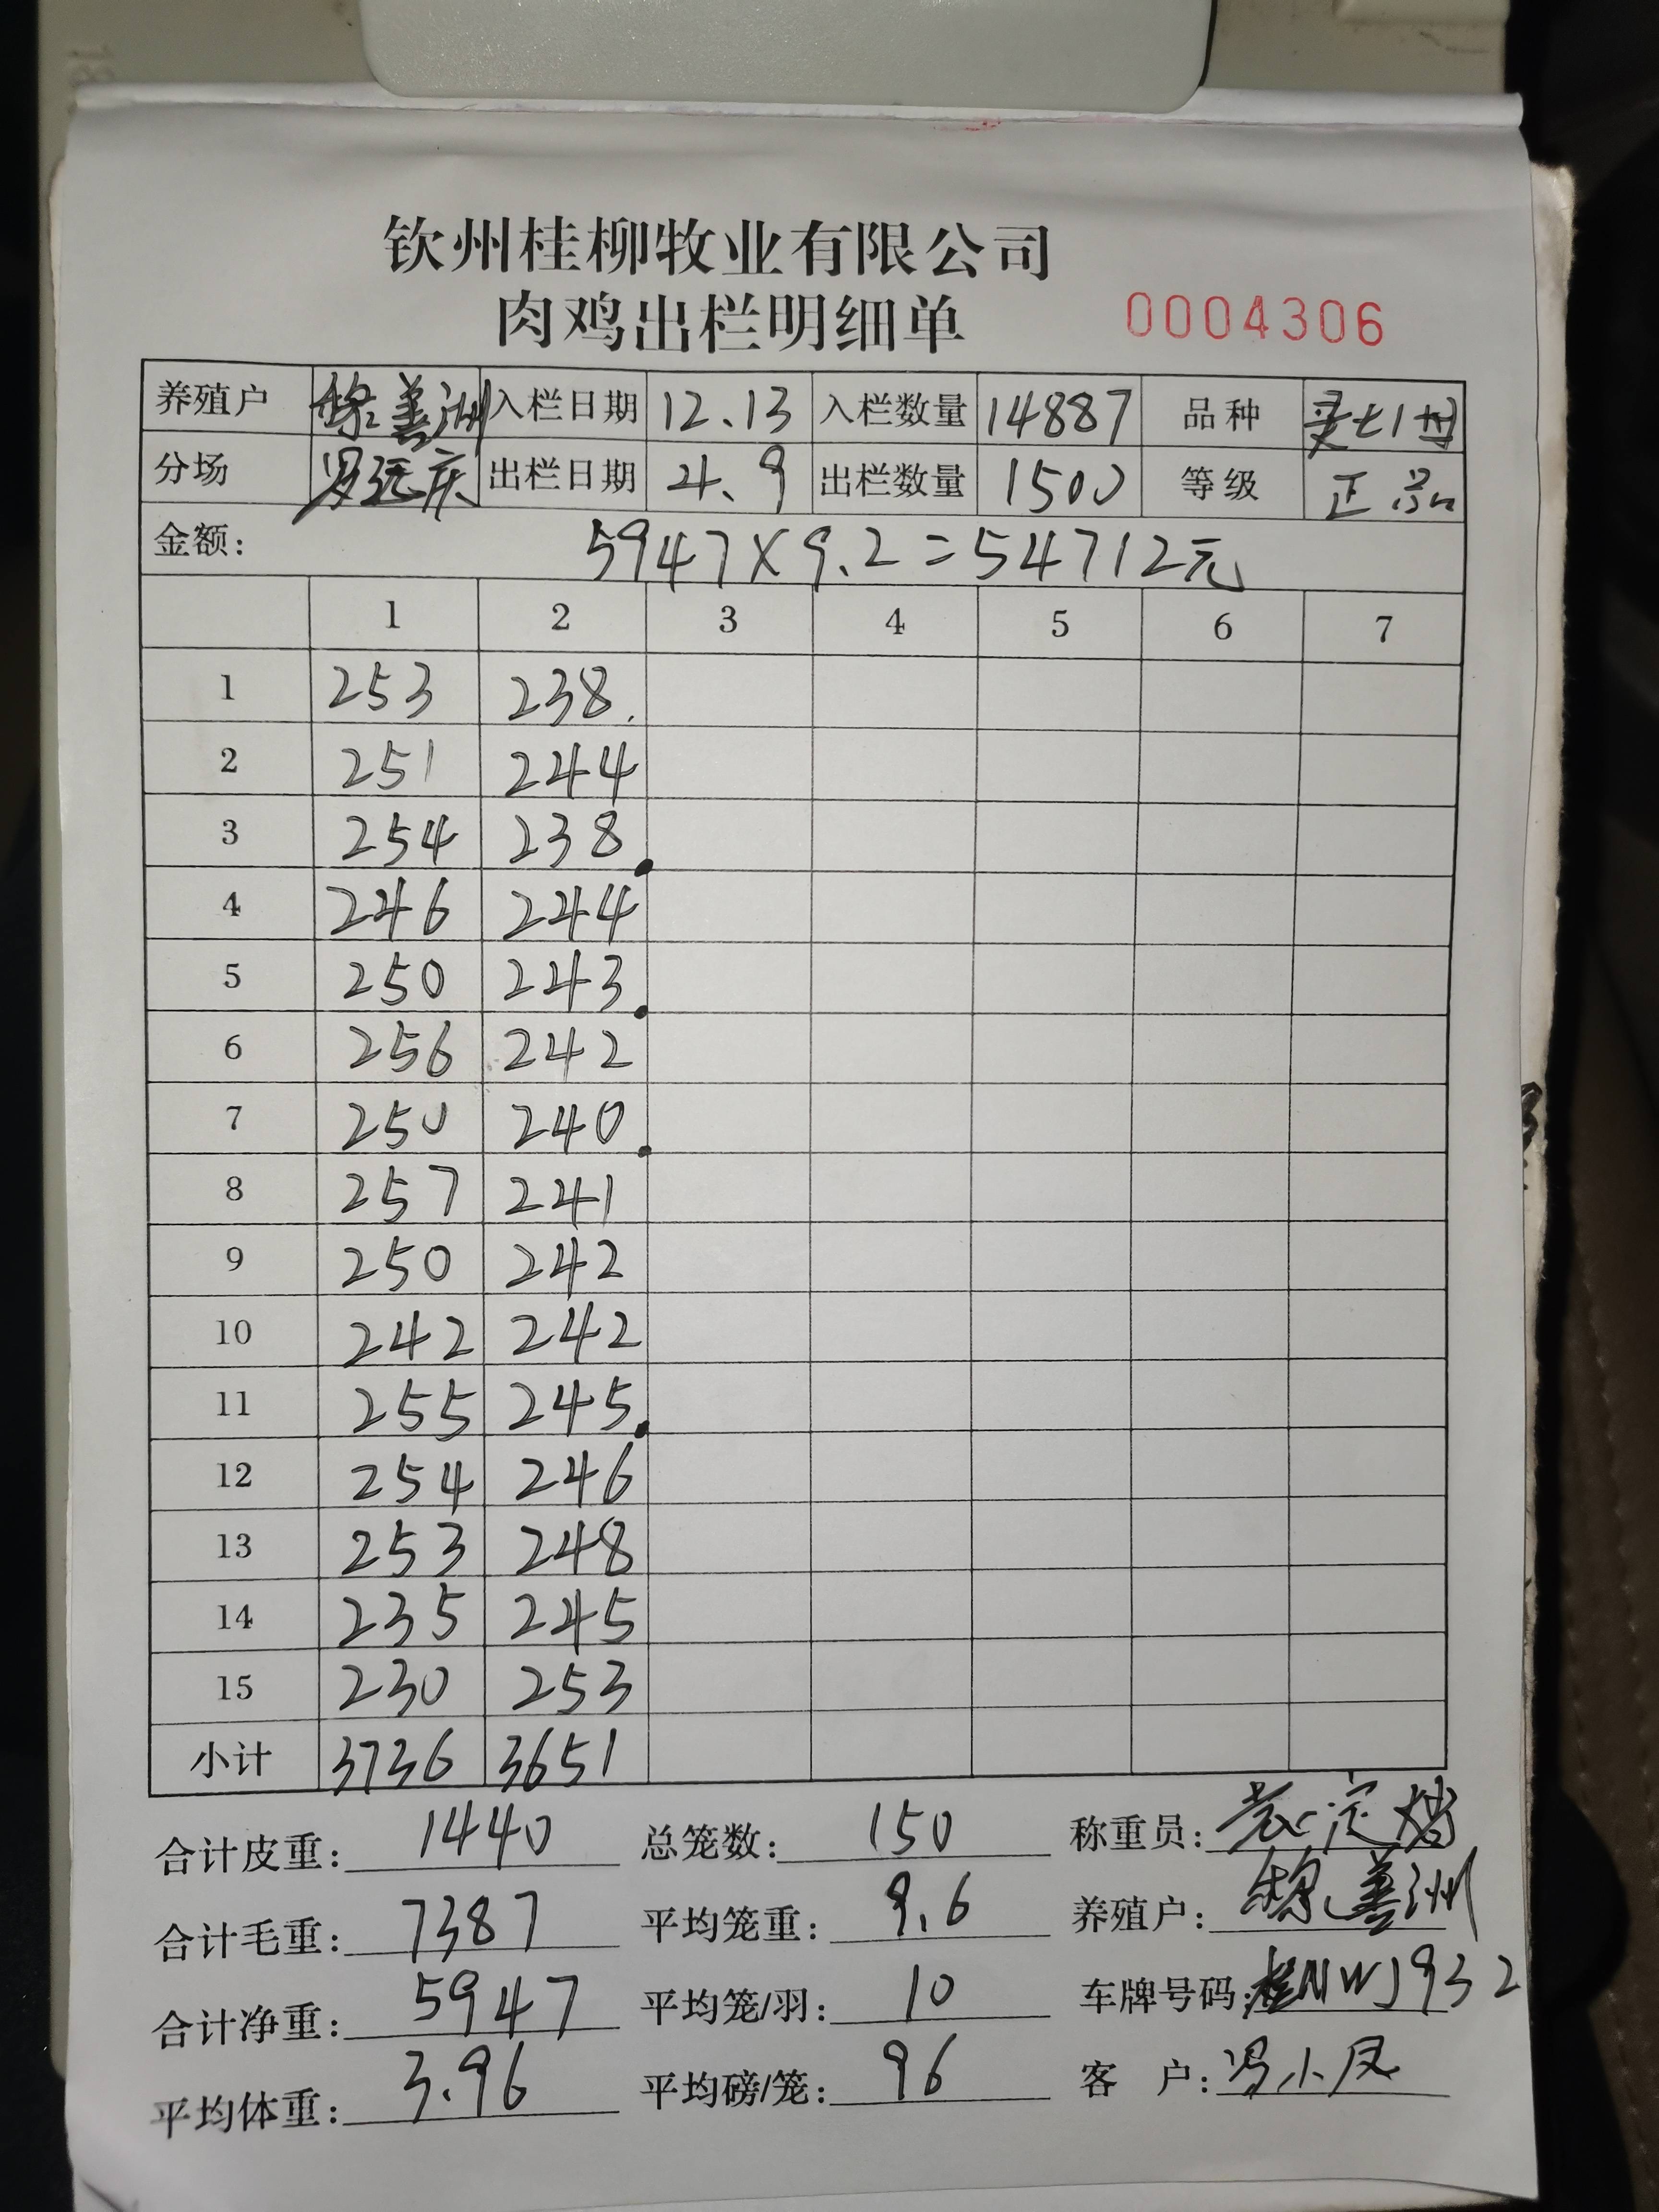 钦州桂柳牧业有限公司
肉鸡出栏明细单 0004306
养殖户 黎善洲 入栏日期 12.13 入栏数量 14887 品种
分场 罗远庆 出栏日期 4.9 出栏数量 1500 等级 正品
金额: 5947×9.2=54712元
1 2 3 4 5 6 7
1 253 238.
2 251 244
3 254 238.
4 246 244
5 250 243.
6 256 242
7 250 240.
8 257 241
9 250 242
10 242 242
11 255 245.
12 254 246
13 253 248
14 235 245
15 230 253
小计 3736 3651
合计皮重: 1440 总笼数: 150 称重员:
合计毛重: 7387 平均笼重: 9.6 养殖户: 黎善洲
合计净重: 5947 平均笼/羽: 10 车牌号码: 桂NWJ932
平均体重: 3.96 平均磅/笼: 96 客 户: 冯小凤